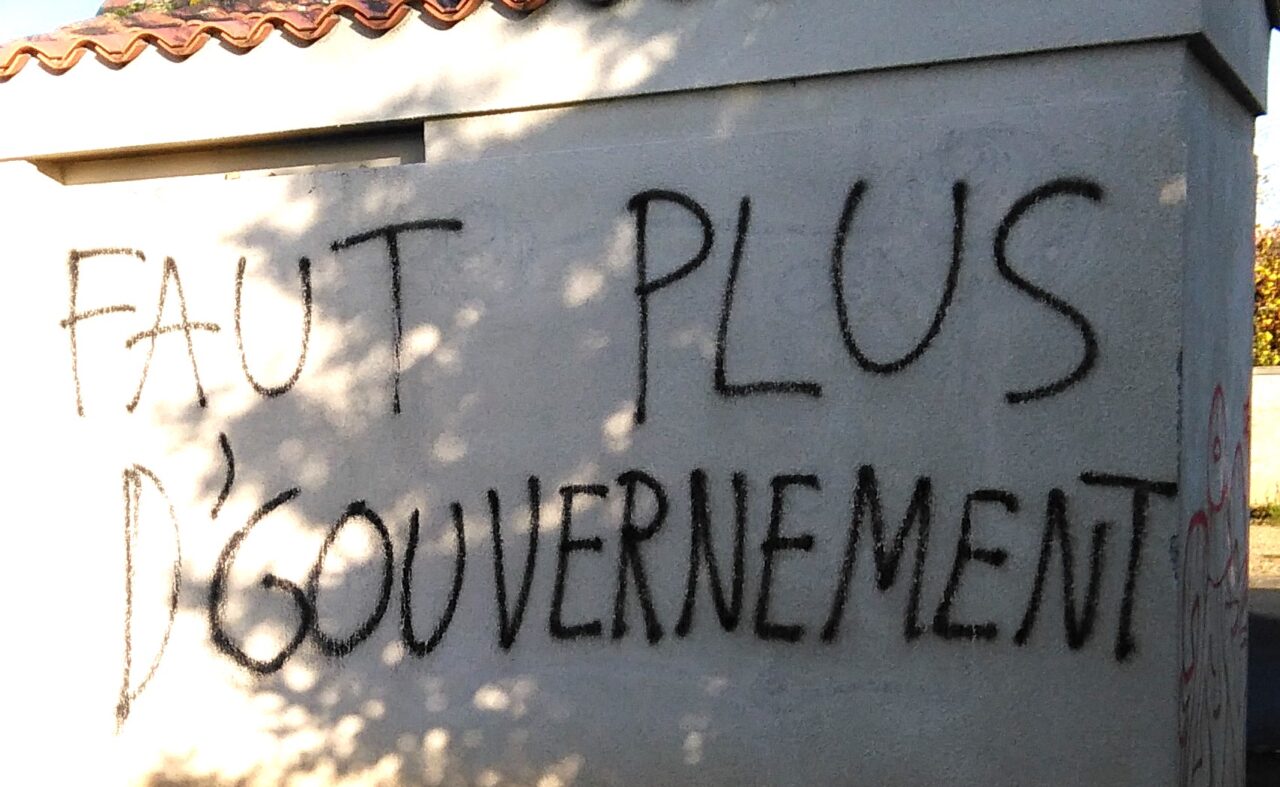 FAUT PLUS
D'GOUVERNEMENT